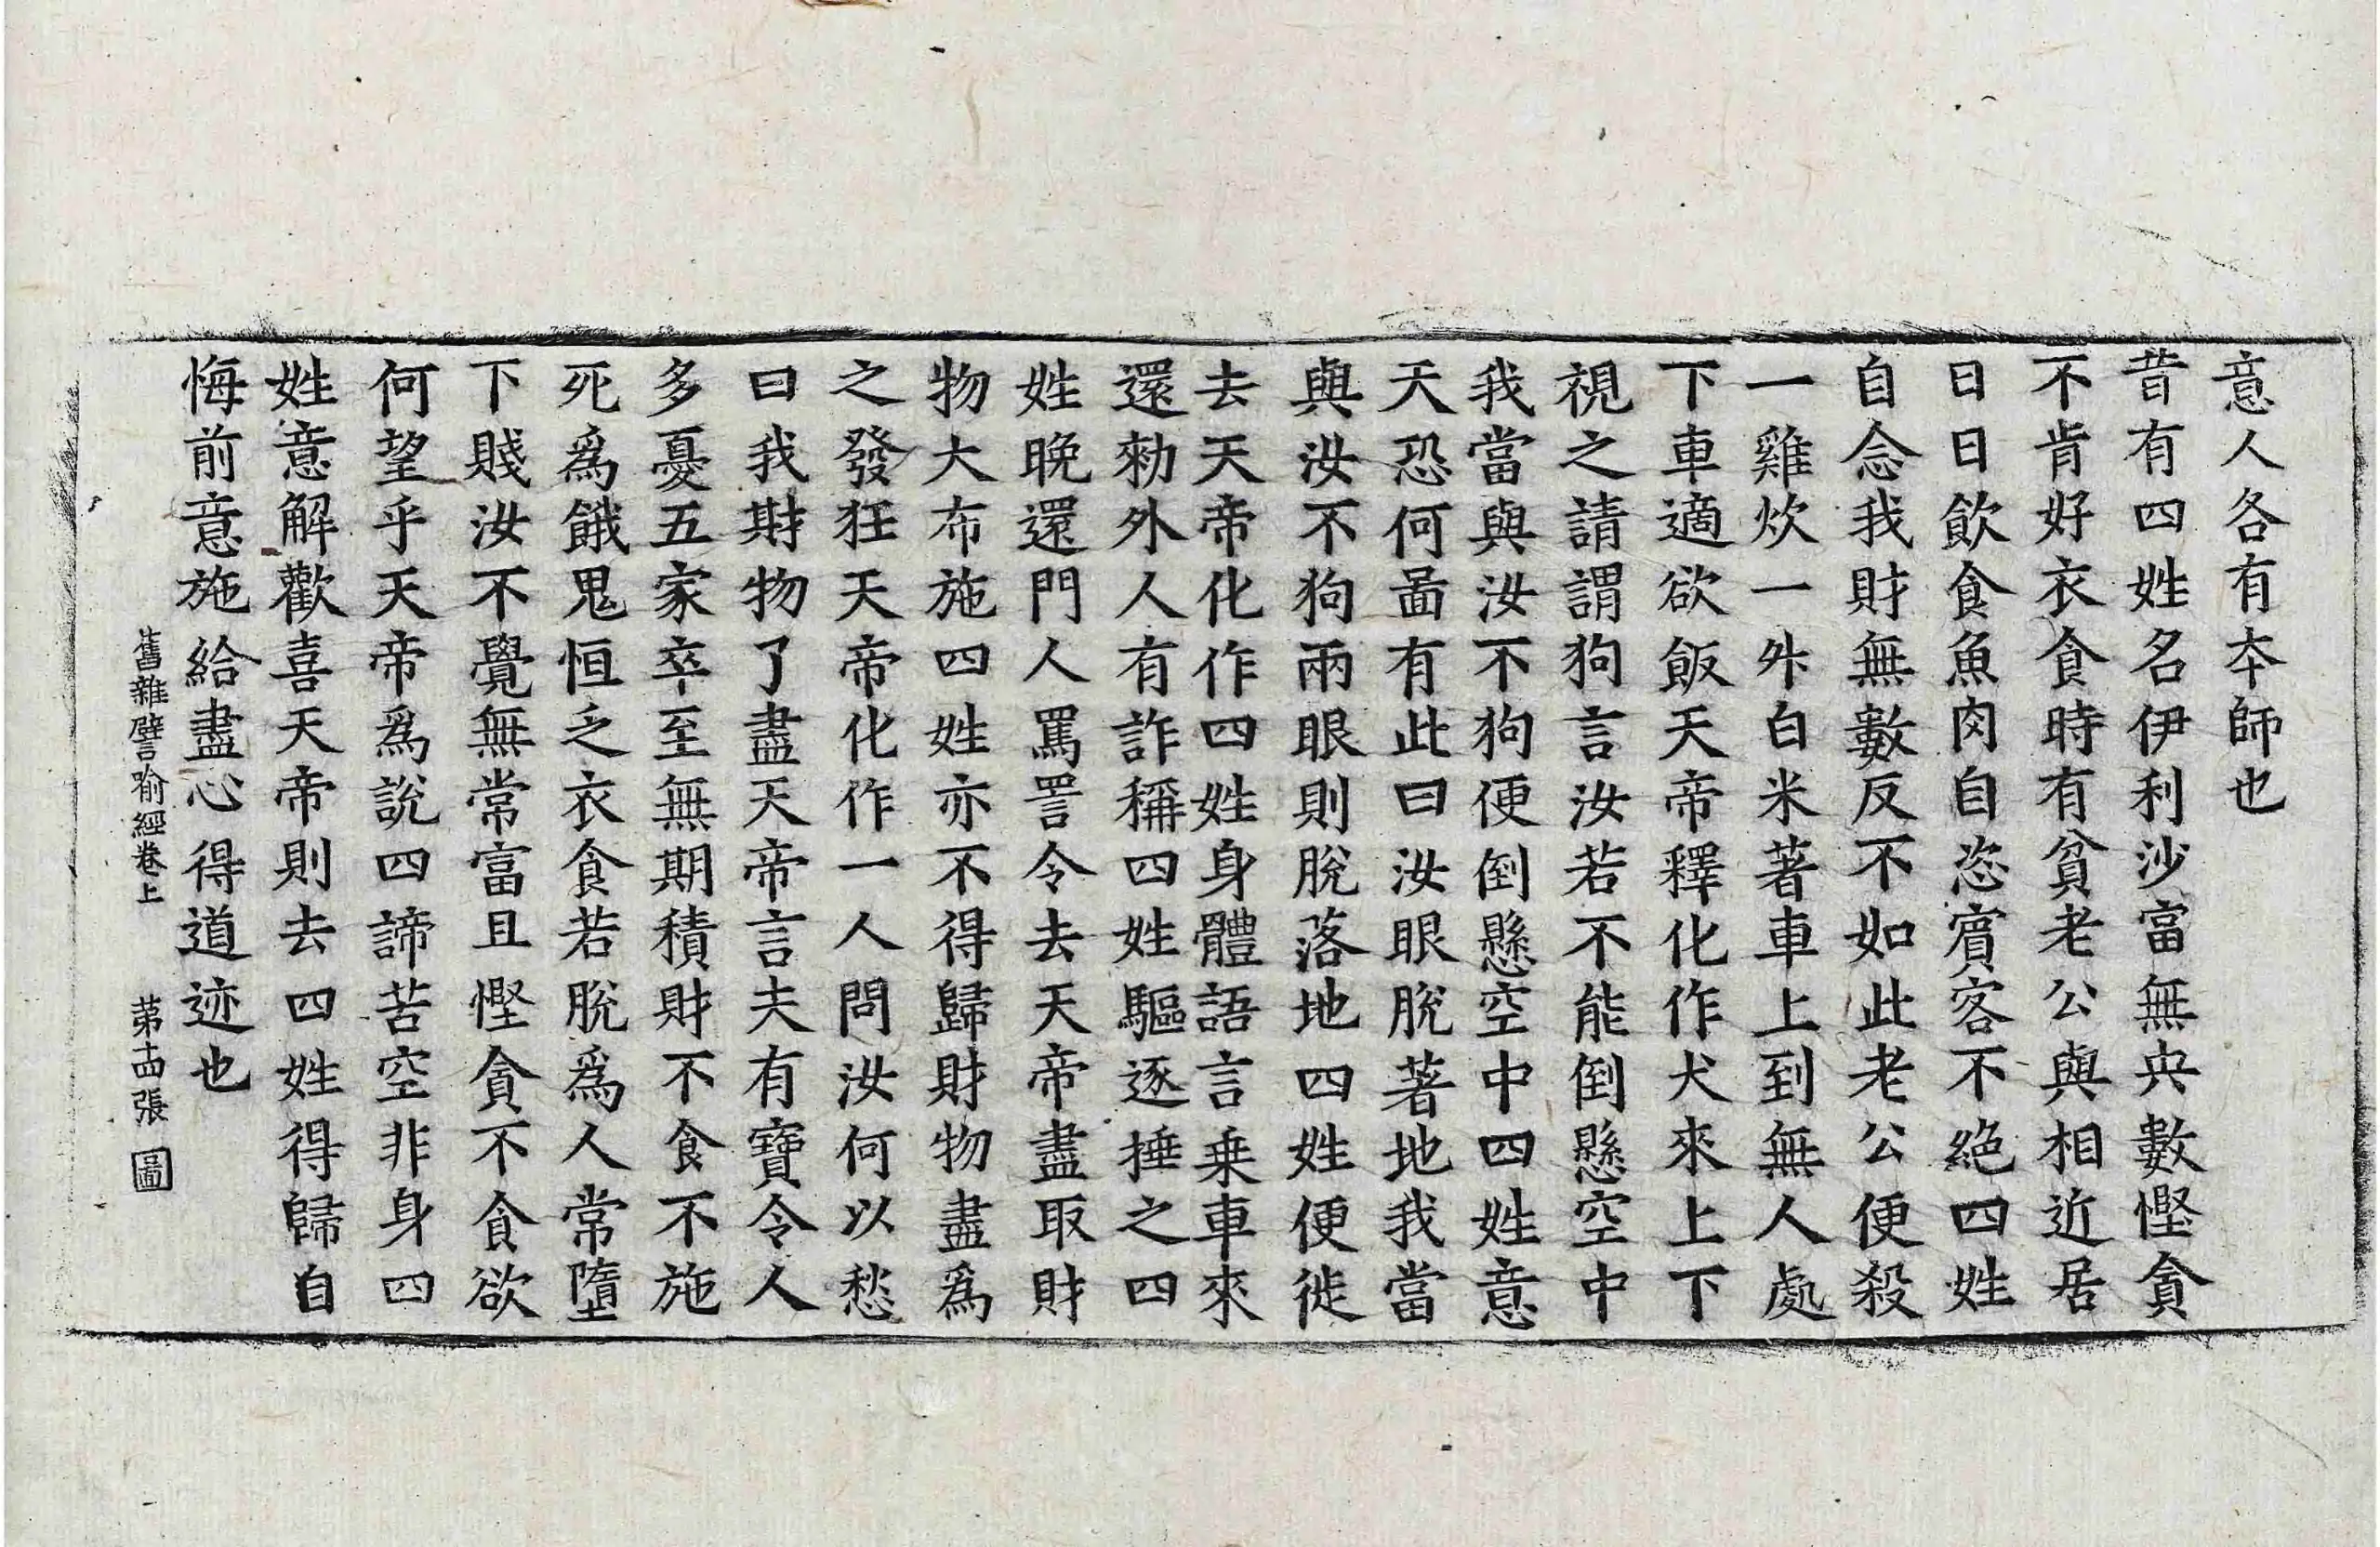 意人各有本師也
昔有四姓名伊利沙富無央數慳貪
不肯好衣食時有貧老公與相近居
日日飲食魚肉自恣賓客不絶四姓
自念我財無數反不如此老公便殺
一雞炊一升白米著車上到無人處
下車適欲飯天帝釋化作犬來上下
視之請謂狗言汝若不能倒懸空中
我當與汝不狗便倒懸空中四姓意
天恐何啚有此曰汝眼脫著地我當
與汝不狗兩眼則脫落地四姓便徙
去天帝化作四姓身體語言乗車來
還勑外人有詐稱四姓驅逐捶之四
姓晚還門人罵詈令去天帝盡取財
物大布施四姓亦不得歸財物盡爲
之發狂天帝化作一人問汝何以愁
曰我財物了盡天帝言夫有寶令人
多憂五家卒至無期積財不食不施
死爲餓鬼恒乏衣食若脫爲人常墮
下賤汝不覺無常富且慳貪不食欲
何望乎天帝爲說四諦苦空非身四
姓意解歡喜天帝則去四姓得歸自
悔前意施給盡心得道迹也
舊雜譬喻經卷上 苐十四張 圖